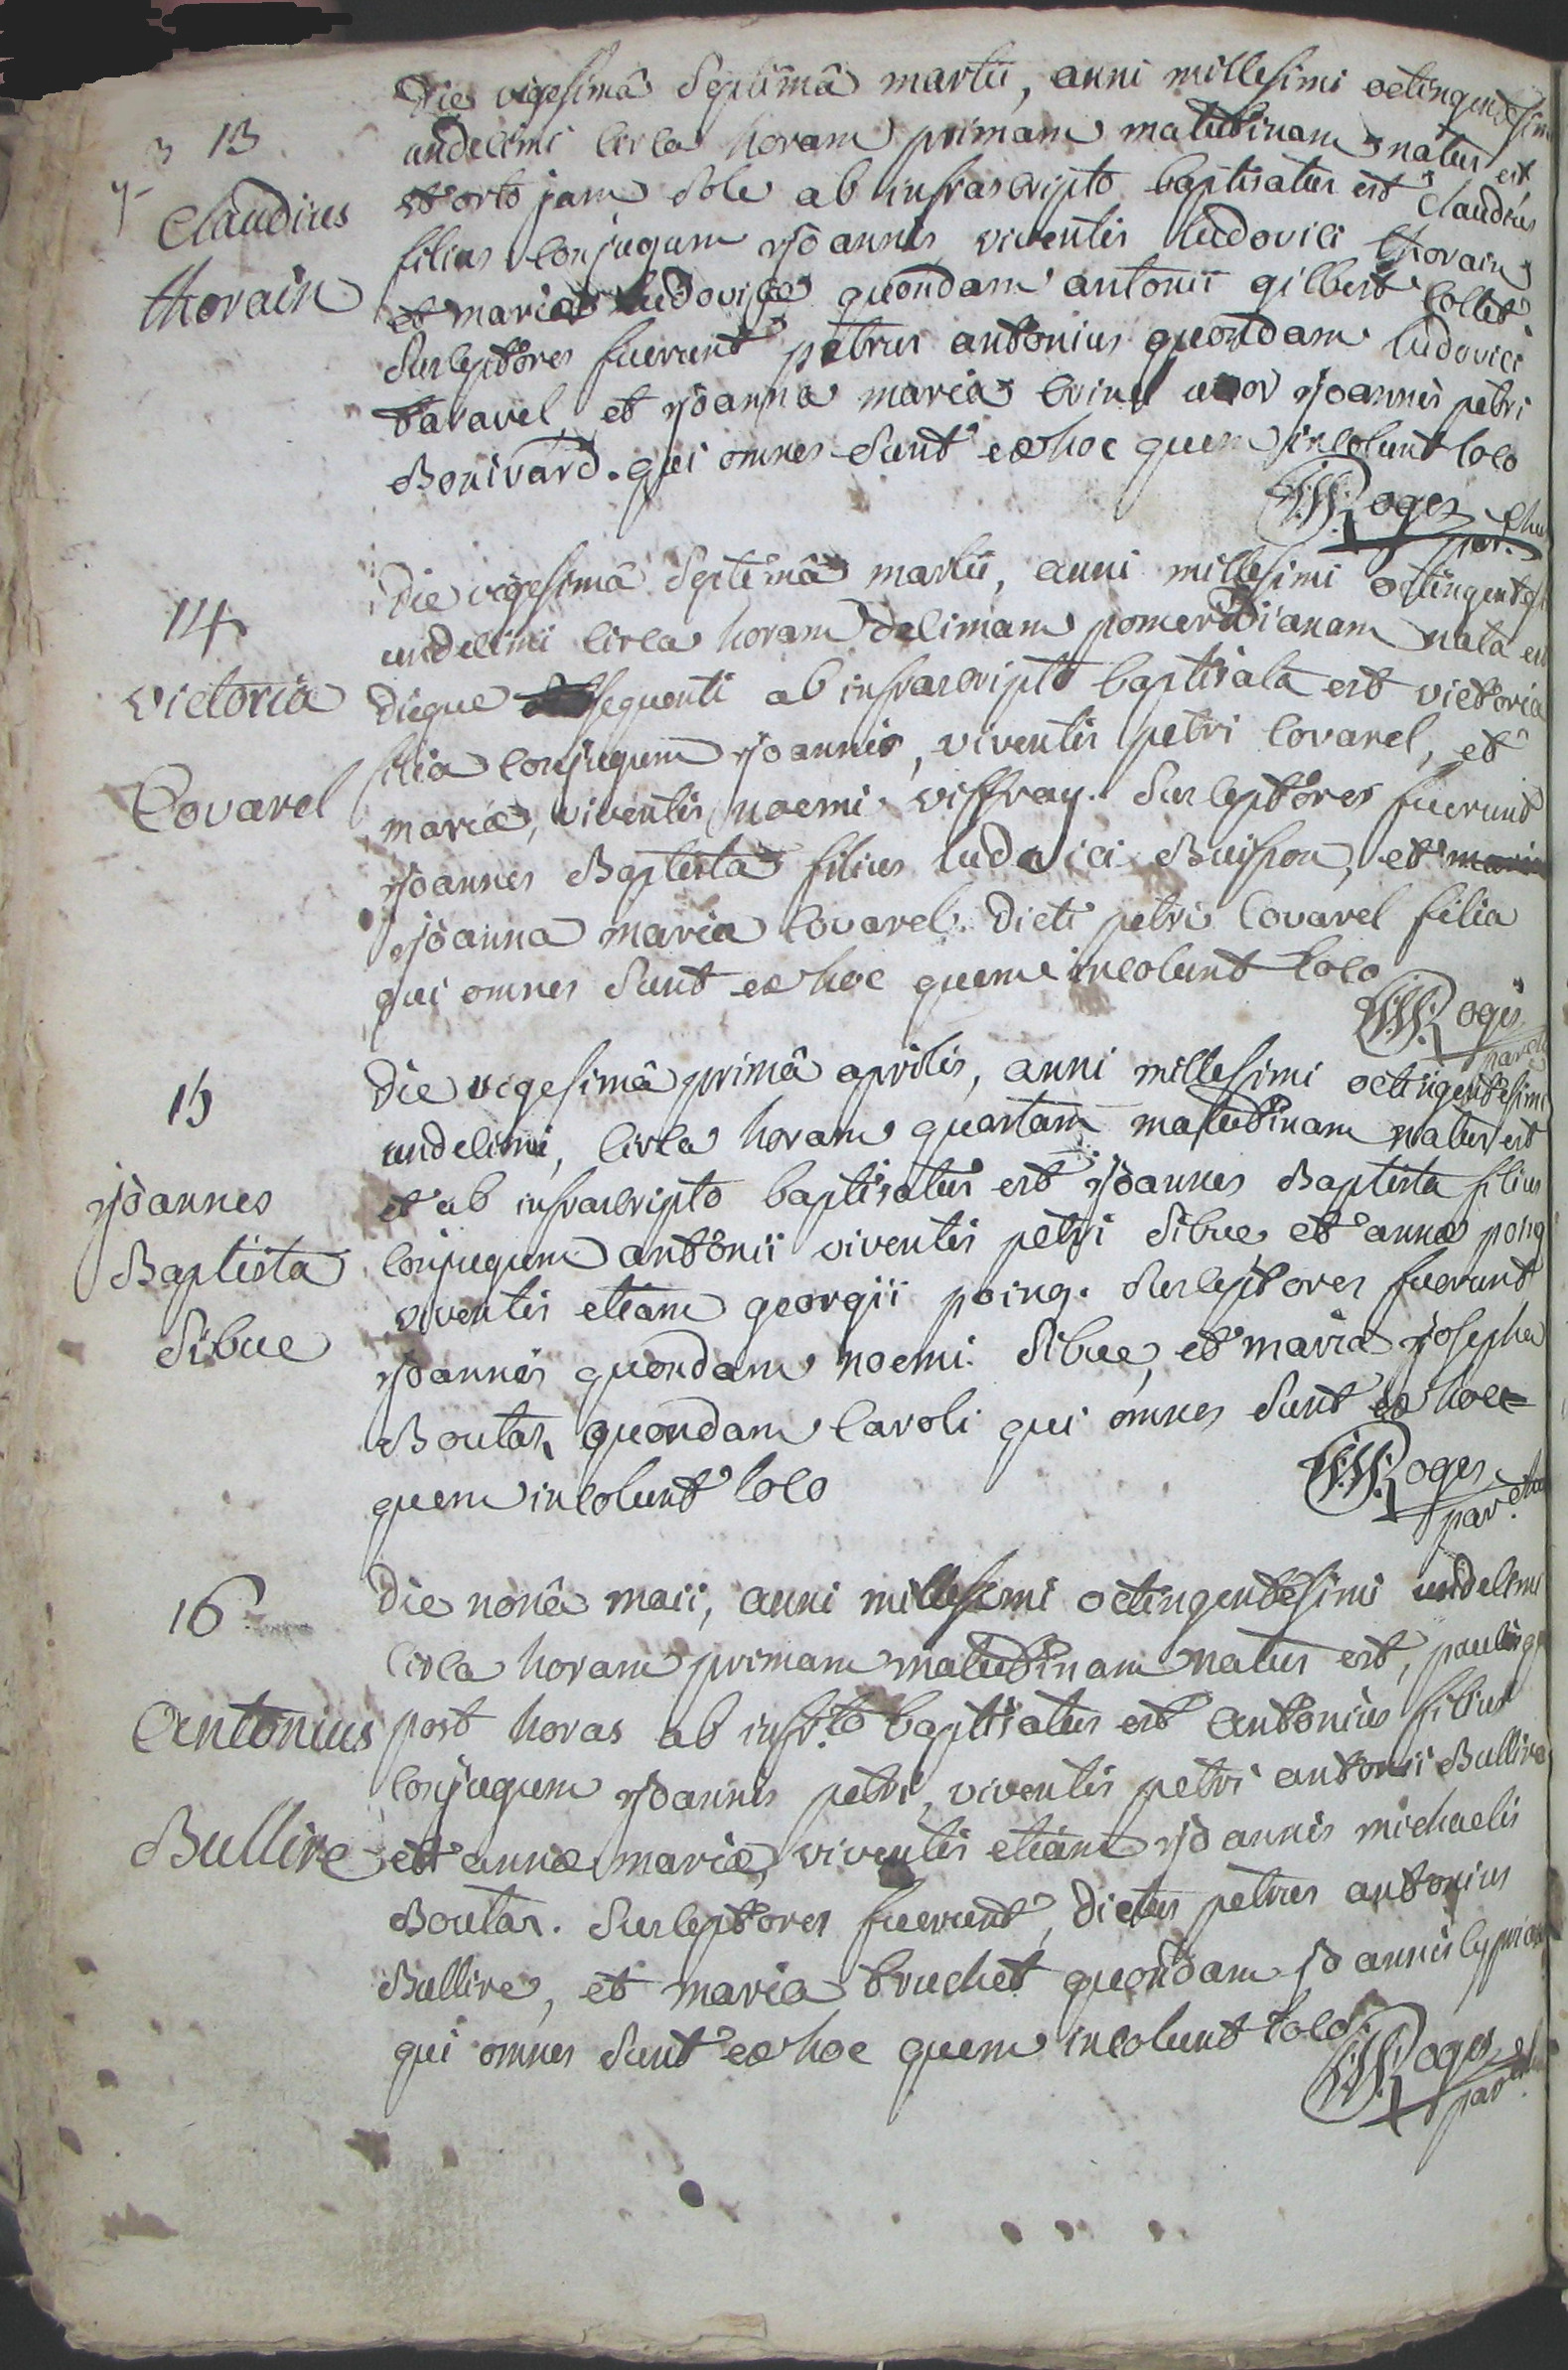 13
Claudius
thorain
Die vigesimâ septimâ martii, anni millesimi octingentesimi
undecimi circa horam primam matutinam natus est
et orto jam sole ab infrascripto baptisatus est Claudius
filius conjugum Joannis viventis ludovici thorain
et mariæ ludovicæ quondam antonii gilbert collet
susceptores fuerunt petrus antonius quondam ludovici
taravel, et Joanna maria uxor Joannis petri
Bonivard. qui omnes sunt ex hoc quem incolunt loco
Roges
par.
14
victoria
Covarel
Die vigesimâ septimâ martii, anni millesimi octingentesi
undecimi circa horam decimam pomeridianam nata est
dieque sequenti ab infrascripto baptisata est victoria
filia conjugum Joannis, viventis petri Covarel, et
mariæ, viventis noemi viffray. susceptores fuerunt
Joannes Baptista filius ludovici Buisson, et
Joanna maria Covarel. dicti petri Covarel filia
qui omnes sunt ex hoc quem incolunt loco
Roges
15
Joannes
Baptista
Sibue
Die vigesimâ primâ aprilis, anni millesimi octingentesimi
undecimi, circa horam quartam matutinam natus est
et ab infrascripto baptisatus est Joannes Baptista filius
conjugum antonii viventis petri Sibue et annæ poing
viventis etiam georgii poing. susceptores fuerunt
Joannes quondam noemi Sibue, et maria Josepha
Boutas, quondam Caroli qui omnes sunt ex hoc
quem incolunt loco
Roges
par.
16
Antonius
Bullire
Die nonâ maii, anni millesimi octingentesimi undecimi
circa horam primam matutinam natus est, paulisq
post horas ab infr.to baptisatus est Antonius filius
conjugum Joannis petri, viventis petri antonii Bullire
et annæ mariæ, viventis etiam Joannis michaelis
Boutas. susceptores fuerunt, dictus petrus antonius
Bullire, et maria truchet quondam Joannis cyprian
qui omnes sunt ex hoc quem incolunt loco
Roges
par